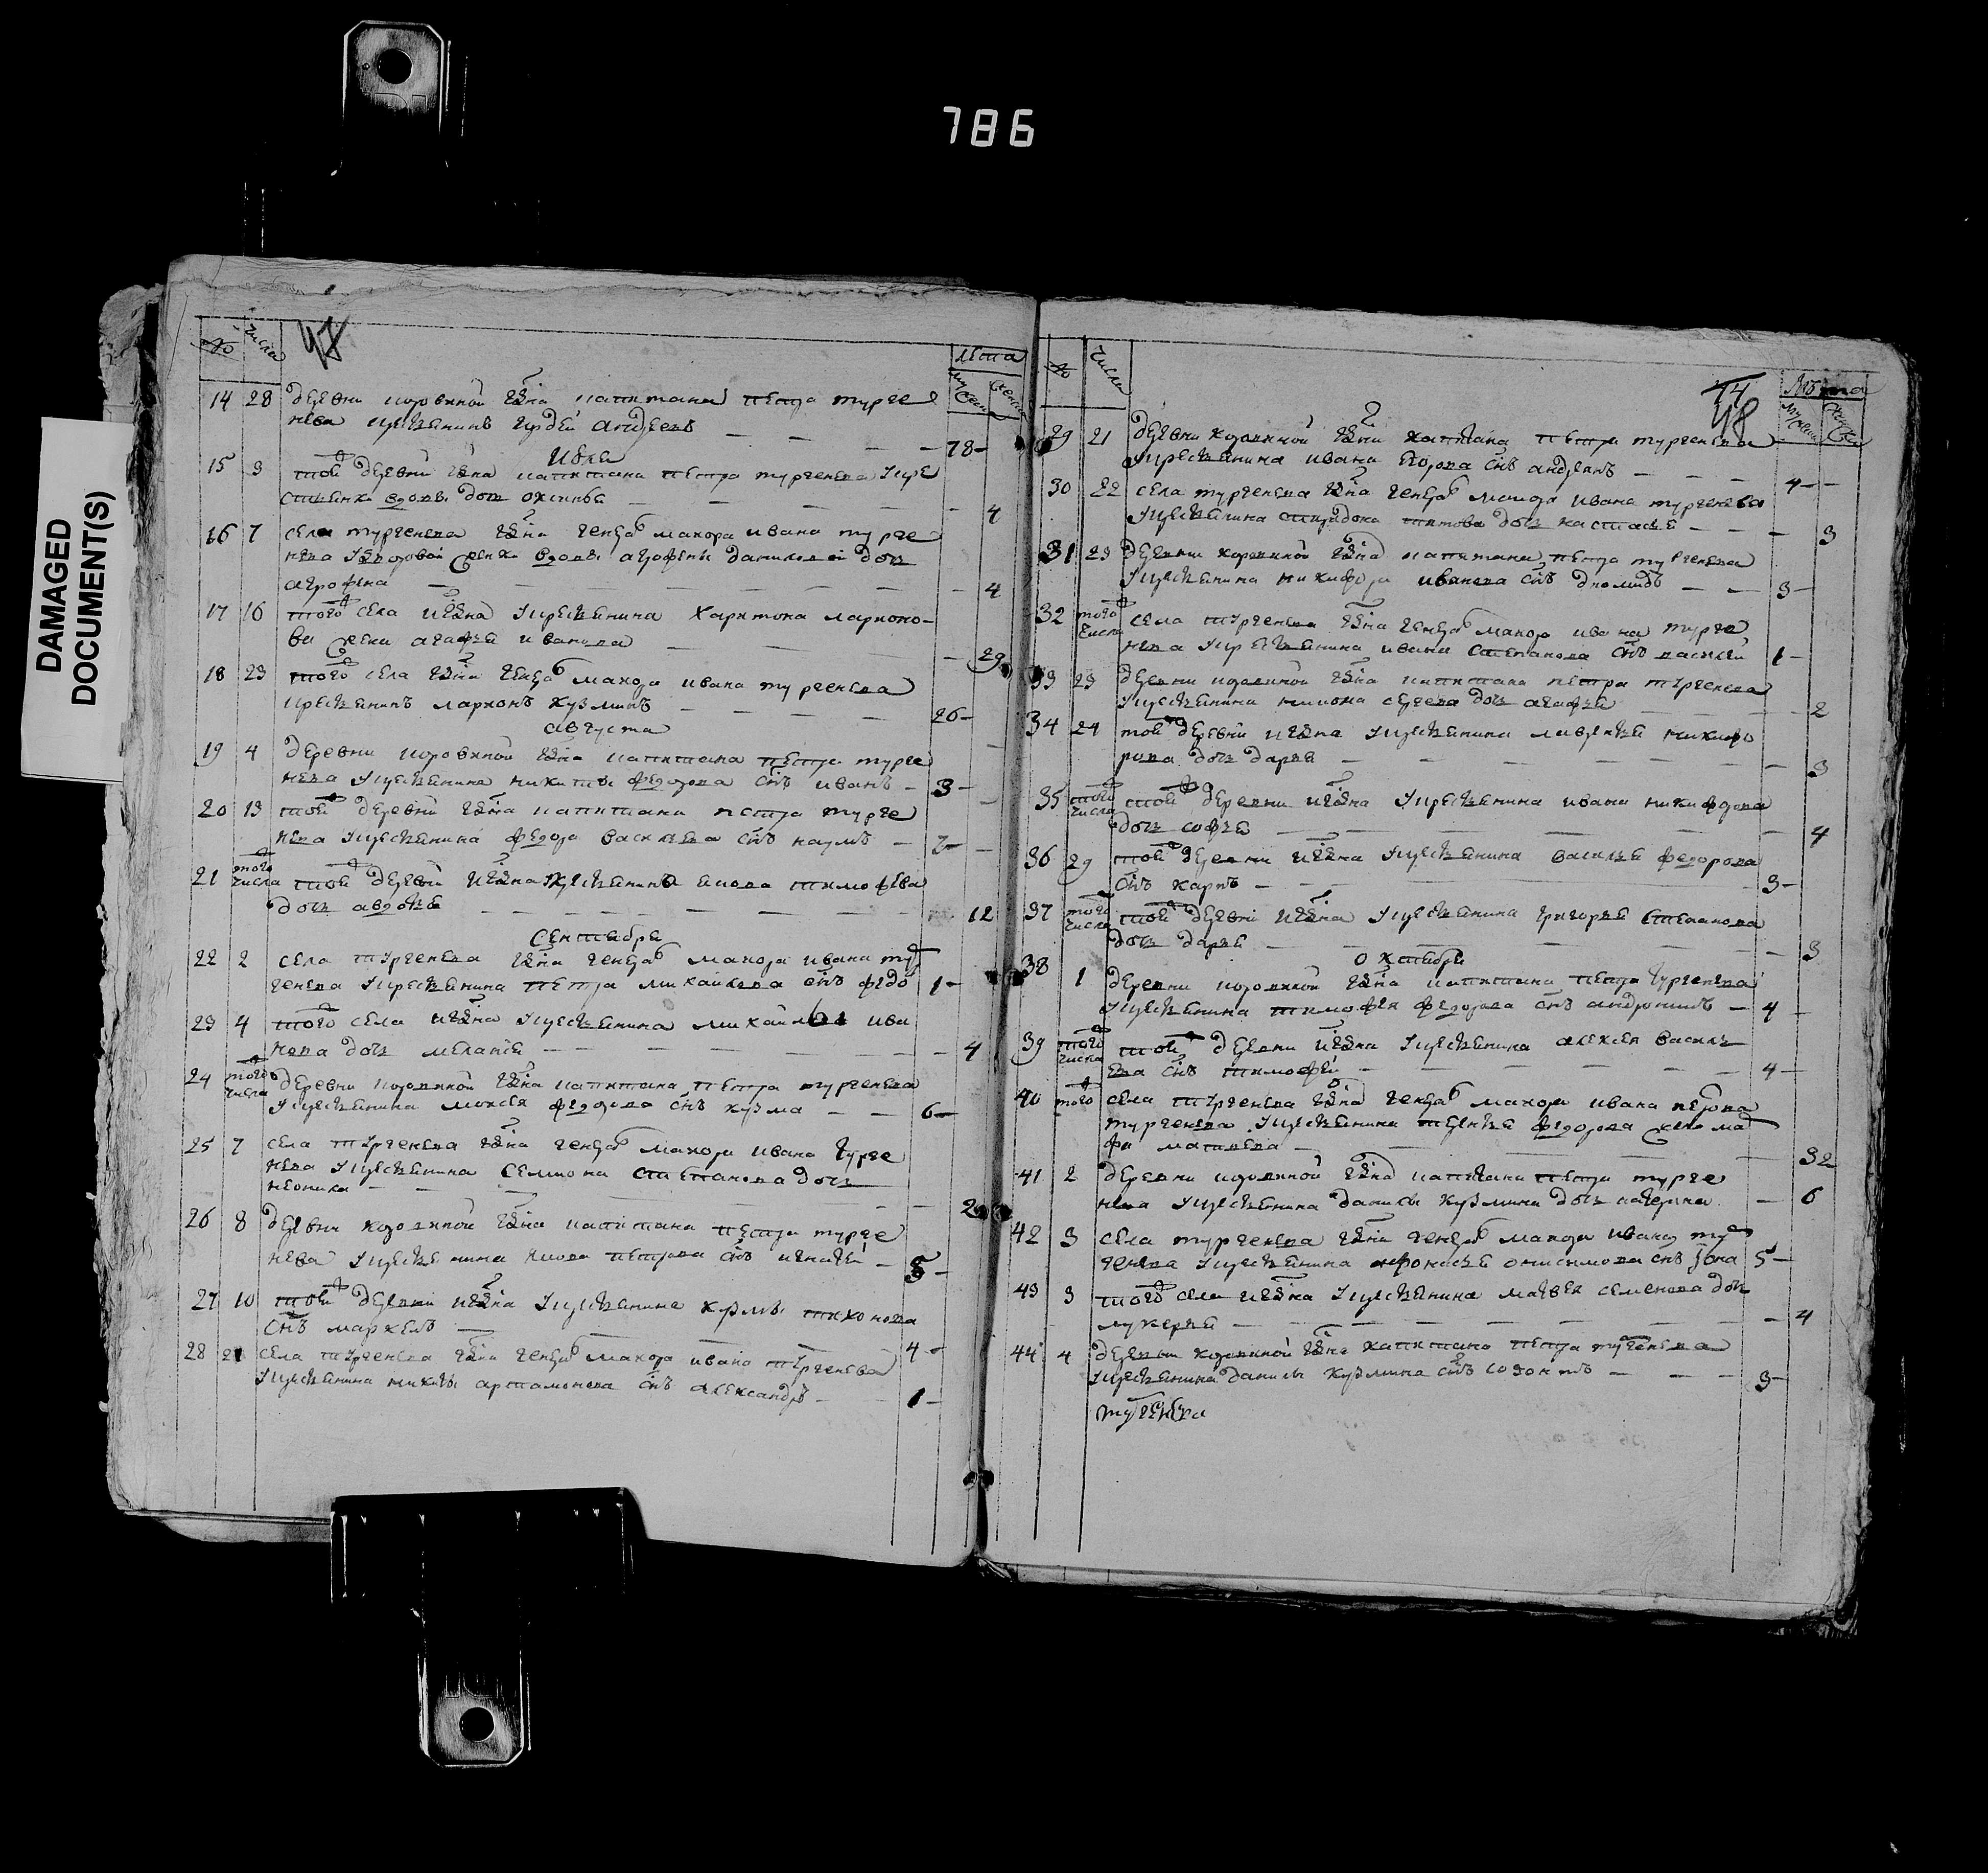 786
DAMAGED
DOCUMENT(S)
№ числа 48 лета
муска женска
14 28 деревни коровиной гдна капитана петра турге
нева крестьянинъ гордей андреевъ 78
Июля
15 3 той деревни гдна капитана петра тургенева
вдовы дочь 4
16 7 села тургенева гдна генералъ маиора ивана турге
нева вдовы агрофены даниловой дочь
агрофена 4
17 16 того села крестьянина харитона ларионо-
ва жена агафья иванова 29
18 23 того села гдна генералъ маиора ивана тургенева
крестьянинъ ларионъ кузминъ 26
августа
19 4 деревни коровиной гдна капитана петра турге
нева крестьянина никиты федорова снъ иванъ 3
20 13 той деревни гдна капитана петра турге
нева крестьянина федора васильева снъ наумъ 2
21 того числа той деревни крестьянина тимофева
дочь авдотья 12
сентября
22 2 села тургенева гдна генералъ маиора ивана тур
генева крестьянина петра михайлова снъ федо 1
23 4 того села крестьянина михайлы ива
нова дочь меланья 4
24 того числа деревни коровиной гдна капитана петра тургенева
крестьянина моисея федорова снъ кузма 6
25 7 села тургенева гдна генералъ маиора ивана турге
нева крестьянина семиона степанова дочь
неонила 2
26 8 деревни коровиной гдна капитана петра турге
нева крестьянина петрова снъ игнатей 5
27 10 той деревни крестьянина кузмы тихонова
снъ маркелъ 4
28 21 села тургенева гдна генералъ маиора ивана тургенева
крестьянина никиты артамонова снъ александръ 1
№ числа 48 лета
29 21 деревни коровиной гдна капитана петра тургенева
крестьянина ивана егорова снъ андреянъ 4
30 22 села тургенева гдна генералъ маиора ивана тургенева
крестьянина титова дочь настасья 3
31 23 деревни коровиной гдна капитана петра тургенева
крестьянина никифора иванова снъ диомидъ 3
32 того числа села тургенева гдна генералъ маиора ивана турге
нева крестьянина ивана степанова снъ василей 1
33 23 деревни коровиной гдна капитана петра тургенева
крестьянина дочь агафья 2
34 24 той деревни крестьянина никифо
рова дочь дарья 3
35 того числа той деревни крестьянина ивана никифорова
дочь софья 4
36 29 той деревни крестьянина василья федорова
снъ карпъ 3
37 того числа той деревни крестьянина григорья степанова
дочь дарья 3
октября
38 1 деревни коровиной гдна капитана петра тургенева
крестьянина тимофея федорова снъ андроникъ 4
39 того числа той деревни крестьянина алексея василь
ева снъ тимофей 4
40 того села тургенева гдна генералъ маиора ивана петрова
тургенева крестьянина терентья федорова жена ма
фа матвева 32
41 2 деревни коровиной гдна капитана петра турге
нева крестьянина данилы кузмина дочь катерина 6
42 3 села тургенева гдна генералъ маиора ивана тур
генева крестьянина афонасья онисимова снъ иона 5
43 3 того села крестьянина матвея семенова дочь
лукерья 4
44 4 деревни коровиной гдна капитана петра тургенева
крестьянина данилы кузмина снъ созонтъ 3